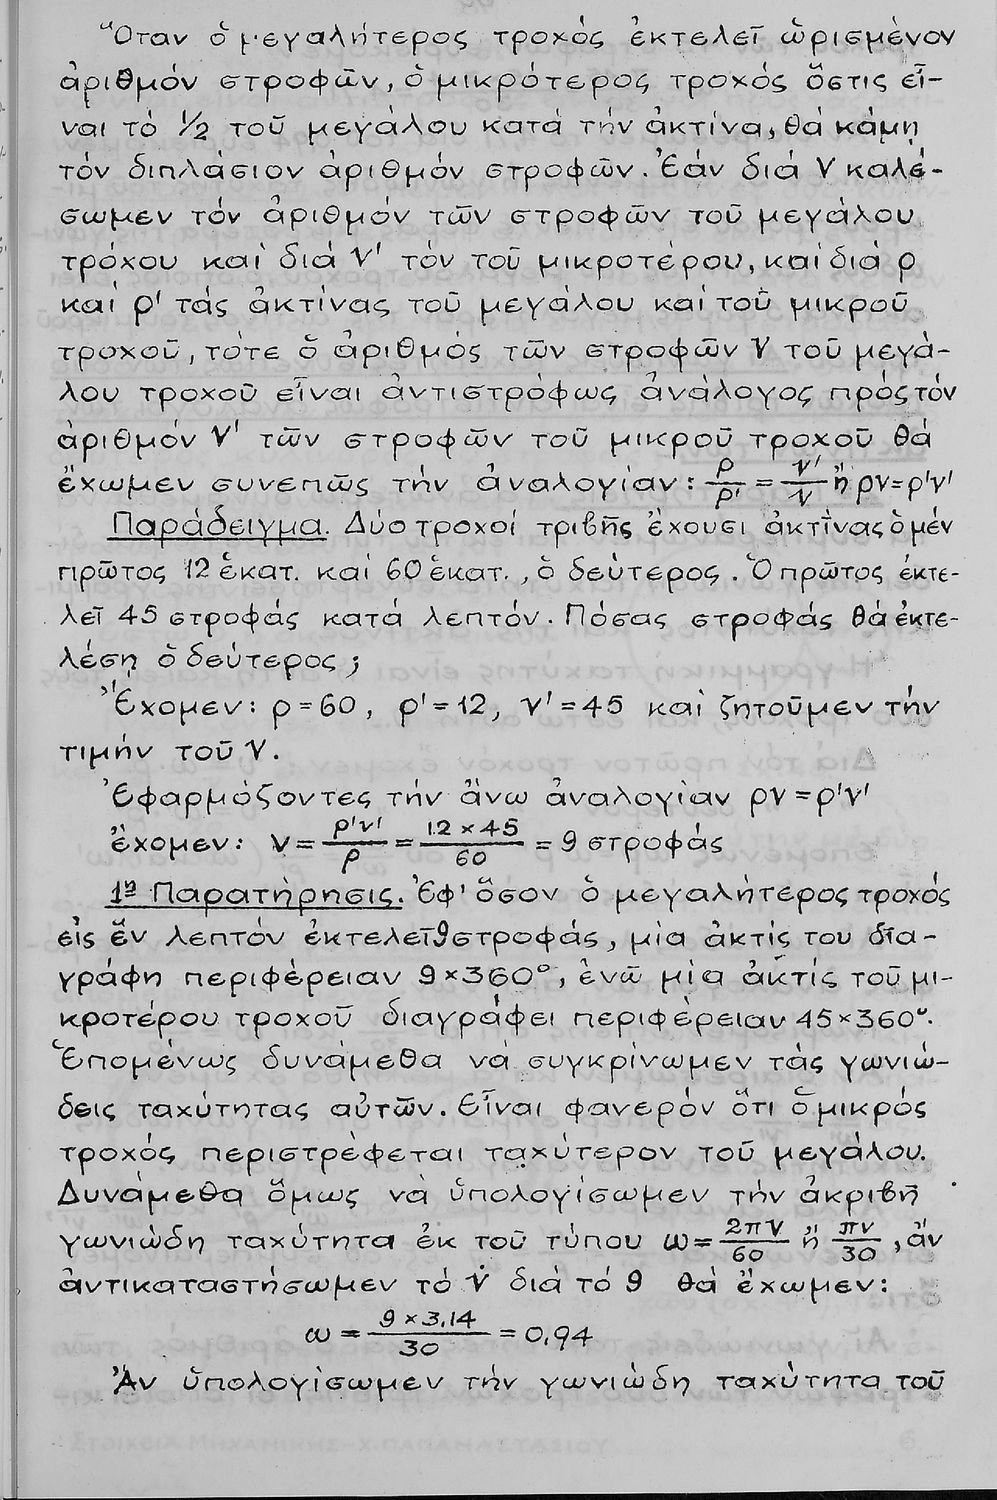 Ὅταν ὁ μεγαλήτερος τροχός ἐκτελεῖ ὡρισμένον
ἀριθμόν στροφῶν, ὁ μικρότερος τροχός ὅστις εἶ-
ναι τό 1/2 τοῦ μεγάλου κατά τήν ἀκτίνα, θά κάμῃ
τόν διπλάσιον ἀριθμόν στροφῶν. Ἐάν διά ν καλέ-
σωμεν τόν ἀριθμόν τῶν στροφῶν τοῦ μεγάλου
τρόχου καί διά ν' τόν τοῦ μικροτέρου, καί διά ρ
καί ρ' τάς ἀκτίνας τοῦ μεγάλου καί τοῦ μικροῦ
τροχοῦ, τότε ὁ ἀριθμός τῶν στροφῶν ν τοῦ μεγά-
λου τροχοῦ εἶναι ἀντιστρόφως ἀνάλογος πρός τόν
ἀριθμόν ν' τῶν στροφῶν τοῦ μικροῦ τροχοῦ θά
ἔχωμεν συνεπῶς τήν ἀναλογίαν: ρ/ρ' = ν'/ν ἤ ρν=ρ'ν'
Παράδειγμα. Δύο τροχοί τριβῆς ἔχουσι ἀκτῖνας ὁ μέν
πρῶτος 12 ἑκατ. καί 60 ἑκατ., ὁ δεύτερος. Ὁ πρῶτος ἐκτε-
λεῖ 45 στροφάς κατά λεπτόν. Πόσας στροφάς θά ἐκτε-
λέσῃ ὁ δεύτερος;
Ἔχομεν: ρ=60, ρ'=12, ν'=45 καί ζητοῦμεν τήν
τιμήν τοῦ ν.
Ἐφαρμόζοντες τήν ἄνω ἀναλογίαν ρν=ρ'ν'
ἔχομεν: ν= ρ'ν'/ρ = 12×45/60 = 9 στροφάς
1η Παρατήρησις. Ἐφ' ὅσον ὁ μεγαλήτερος τροχός
εἰς ἕν λεπτόν ἐκτελεῖ 9 στροφάς, μία ἀκτίς του δια-
γράφῃ περιφέρειαν 9×360°, ἐνῶ μία ἀκτίς τοῦ μι-
κροτέρου τροχοῦ διαγράφει περιφέρειαν 45×360°.
Ἑπομένως δυνάμεθα νά συγκρίνωμεν τάς γωνιώ-
δεις ταχύτητας αὐτῶν. Εἶναι φανερόν ὅτι ὁ μικρός
τροχός περιστρέφεται ταχύτερον τοῦ μεγάλου.
Δυνάμεθα ὅμως νά ὑπολογίσωμεν τήν ἀκριβῆ
γωνιώδη ταχύτητα ἐκ τοῦ τύπου ω= 2πν/60 ἤ πν/30, ἄν
ἀντικαταστήσωμεν τό ν διά τό 9 θά ἔχωμεν:
ω = 9×3,14/30 = 0,94
Ἄν ὑπολογίσωμεν τήν γωνιώδη ταχύτητα τοῦ